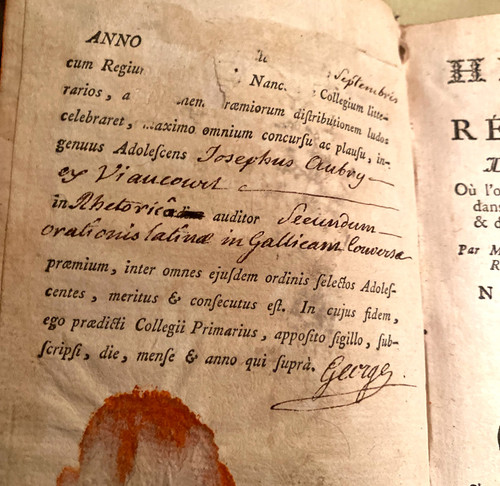 ANNO
Septembris
cum Nanc Collegium litte-
rarios, a distributionem ludos
celebraret, maximo omnium concursu ac plausu, in-
genuus Adolescens Josephus Aubry
ex Viaucourt
in Rhetoricâ auditor Secundum
orationis latinæ in Gallicam Conversæ
præmium, inter omnes ejusdem ordinis selectos Adoles-
centes, meritus & consecutus est. In cujus fidem,
ego prædicti Collegii Primarius, apposito sigillo, sub-
scripsi, die, mense & anno qui suprà. George
H
RÉ
Où l'o
dans
& d
Par M
R
N